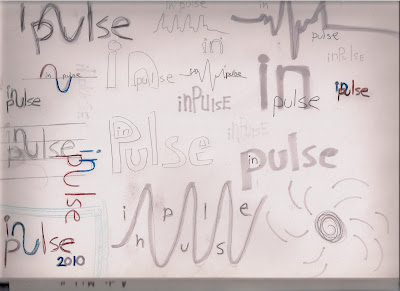 inpulse
in pulse
in pulse
in
inPulse
in pulse
in pulse
in pulse
in pulse
inpulse
inPulsE
inpulse
inPulse
inpulse
in Pulse
in pulse
in pulse
inpulse
2010
in pulse